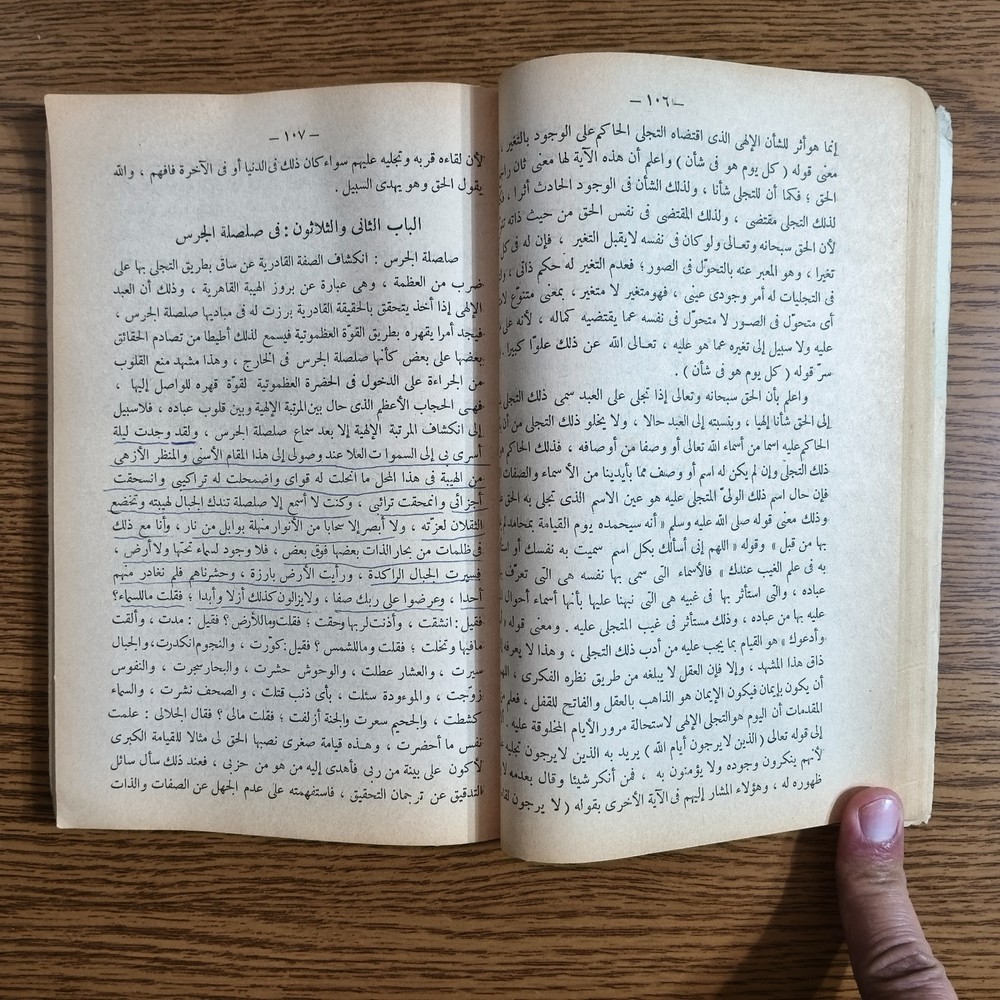 — ١٠٦ —
إنما هو أثر للشأن الإلهى الذى اقتضاه التجلى الحاكم على الوجود بالتغير ،
معنى قوله ( كل يوم هو فى شأن ) واعلم أن هذه الآية لها معنى ثان
الحق ؛ فكما أن للتجلى شأنا ، ولذلك الشأن فى الوجود الحادث أثرا ،
لذلك التجلى مقتضى ، ولذلك المقتضى فى نفس الحق من حيث ذاته
لأن الحق سبحانه وتعـالى ولو كان فى نفسه لا يقبل التغير ، فإن له فى كل
تغيرا ، وهو المعبر عنه بالتحوّل فى الصور ؛ فعدم التغير له حكم ذاتى ،
فى التجليات له أمر وجودى عينى ، فهو متغير لا متغير ، بمعنى متنوّع
أى متحوّل فى الصـور لا متحوّل فى نفسه عما يقتضيه كماله ، لأنه على
عليه ولا سبيل إلى تغيره عما هو عليه ، تعـالى الله عن ذلك علوّا كبيرا .
سرّ قوله ( كل يوم هو فى شأن ) .
واعلم بأن الحق سبحانه وتعالى إذا تجلى على العبد سمى ذلك التجلى
إلى الحق شأنا إلهيا ، وبنسبته إلى العبد حالا ، ولا يخلو ذلك التجلى من أن
الحاكم عليه اسما من أسماء الله تعالى أو وصفا من أوصافه ، فذلك الحاكم
ذلك التجلى وإن لم يكن له اسم أو وصف مما بأيدينا من الأسماء والصفات
فإن حال اسم ذلك الولىّ المتجلى عليه هو عين الاسم الذى تجلى به الحق
وذلك معنى قوله صلى الله عليه وسلم « أنه سيحمده يوم القيامة بمحامد لم
بها من قبل » وقوله « اللهم إنى أسألك بكل اسم سميت به نفسك أو
به فى علم الغيب عندك » فالأسماء التى سمى بها نفسه هى التى تعرّف
عباده ، والتى استأثر بها فى غيبه هى التى نبهنا عليها بأنها أسماء أحوال
عليه بها من عباده ، وذلك مستأثر فى غيب المتجلى عليه . ومعنى قوله
وأدعوك » هو القيام بما يجب عليه من أدب ذلك التجلى ، وهذا لا يعرفه
ذاق هذا المشهد ، وإلا فإن العقل لا يبلغه من طريق نظره الفكرى ،
أن يكون بإيمان فيكون الإيمان هو الذاهب بالعقل والفاتح للقفل ،
المقدمات أن اليوم هو التجلى الإلهى لاستحالة مرور الأيام المخلوقة عليه .
إلى قوله تعالى ( الذين لا يرجون أيام الله ) يريد به الذين لا يرجون تجليه
لأنهم ينكرون وجوده ولا يؤمنون به ، فمن أنكر شيئا وقال بعدمه
ظهوره له ، وهؤلاء المشار إليهم فى الآية الأخرى بقوله ( لا يرجون
— ١٠٧ —
لأن لقاءه قربه وتجليه عليهم سواء كان ذلك فى الدنيا أو فى الآخرة فافهم ، والله
يقول الحق وهو يهدى السبيل .
الباب الثانى والثلاثون : فى صلصلة الجرس
صلصلة الجرس : انكشاف الصفة القادرية عن ساق بطريق التجلى بها على
ضرب من العظمة ، وهى عبارة عن بروز الهيبة القاهرية ، وذلك أن العبد
الإلهى إذا أخذ يتحقق بالحقيقة القادرية برزت له فى مباديها صلصلة الجرس ،
فيجد أمرا يقهره بطريق القوّة العظموتية فيسمع لذلك أطيطا من تصادم الحقائق
بعضها على بعض كأنها صلصلة الجرس فى الخارج ، وهذا مشهد منع القلوب
من الجراءة على الدخول فى الحضرة العظموتية لقوّة قهره للواصل إليها ،
فهى الحجاب الأعظم الذى حال بين المرتبة الإلهية وبين قلوب عباده ، فلا سبيل
إلى انكشاف المرتبة الإلهية إلا بعد سماع صلصلة الجرس ، ولقد وجدت ليلة
أسرى بى إلى السموات العلا عند وصولى إلى هذا المقام الأسنى والمنظر الأزهى
من الهيبة فى هذا المحل ما انحلت له قواى واضمحلت له تراكيبى وانسحقت
أجزائى وانمحقت ترائبى ، وكنت لا أسمع إلا صلصلة تندك الجبال لهيبته وتخضع
الثقلان لعزته ، ولا أبصر إلا سحابا من الأنوار منهلة بوابل من نار ، وأنا مع ذلك
فى ظلمات من بحار الذات بعضها فوق بعض ، فلا وجود لسماء تحتها ولا أرض ،
فسيرت الجبال الراكدة ، ورأيت الأرض بارزة ، وحشرناهم فلم نغادر منهم
أحدا ، وعرضوا على ربك صفا ، ولا يزالون كذلك أزلا وأبدا ؛ فقلت ما للسماء؟
فقيل : انشقت ، وأذنت لربها وحقت ؛ فقلت وما للأرض؟ فقيل : مدت ، وألقت
ما فيها وتخلت ؛ فقلت وما للشمس ؟ فقيل : كوّرت ، والنجوم انكدرت ، والجبال
سيرت ، والعشار عطلت ، والوحوش حشرت ، والبحار سجرت ، والنفوس
زوّجت ، والموءودة سئلت ، بأى ذنب قتلت ، والصحف نشرت ، والسماء
كشطت ، والجحيم سعرت والجنة أزلفت ؛ فقلت مالى ؟ فقال الجلالى : علمت
نفس ما أحضرت ، وهـذه قيامة صغرى نصبها الحق لى مثالا للقيامة الكبرى
لأكون على بينة من ربى فأهدى إليه من هو من حزبى ، فعند ذلك سأل سائل
التدقيق عن ترجمان التحقيق ، فاستفهمته على عدم الجهل عن الصفات والذات